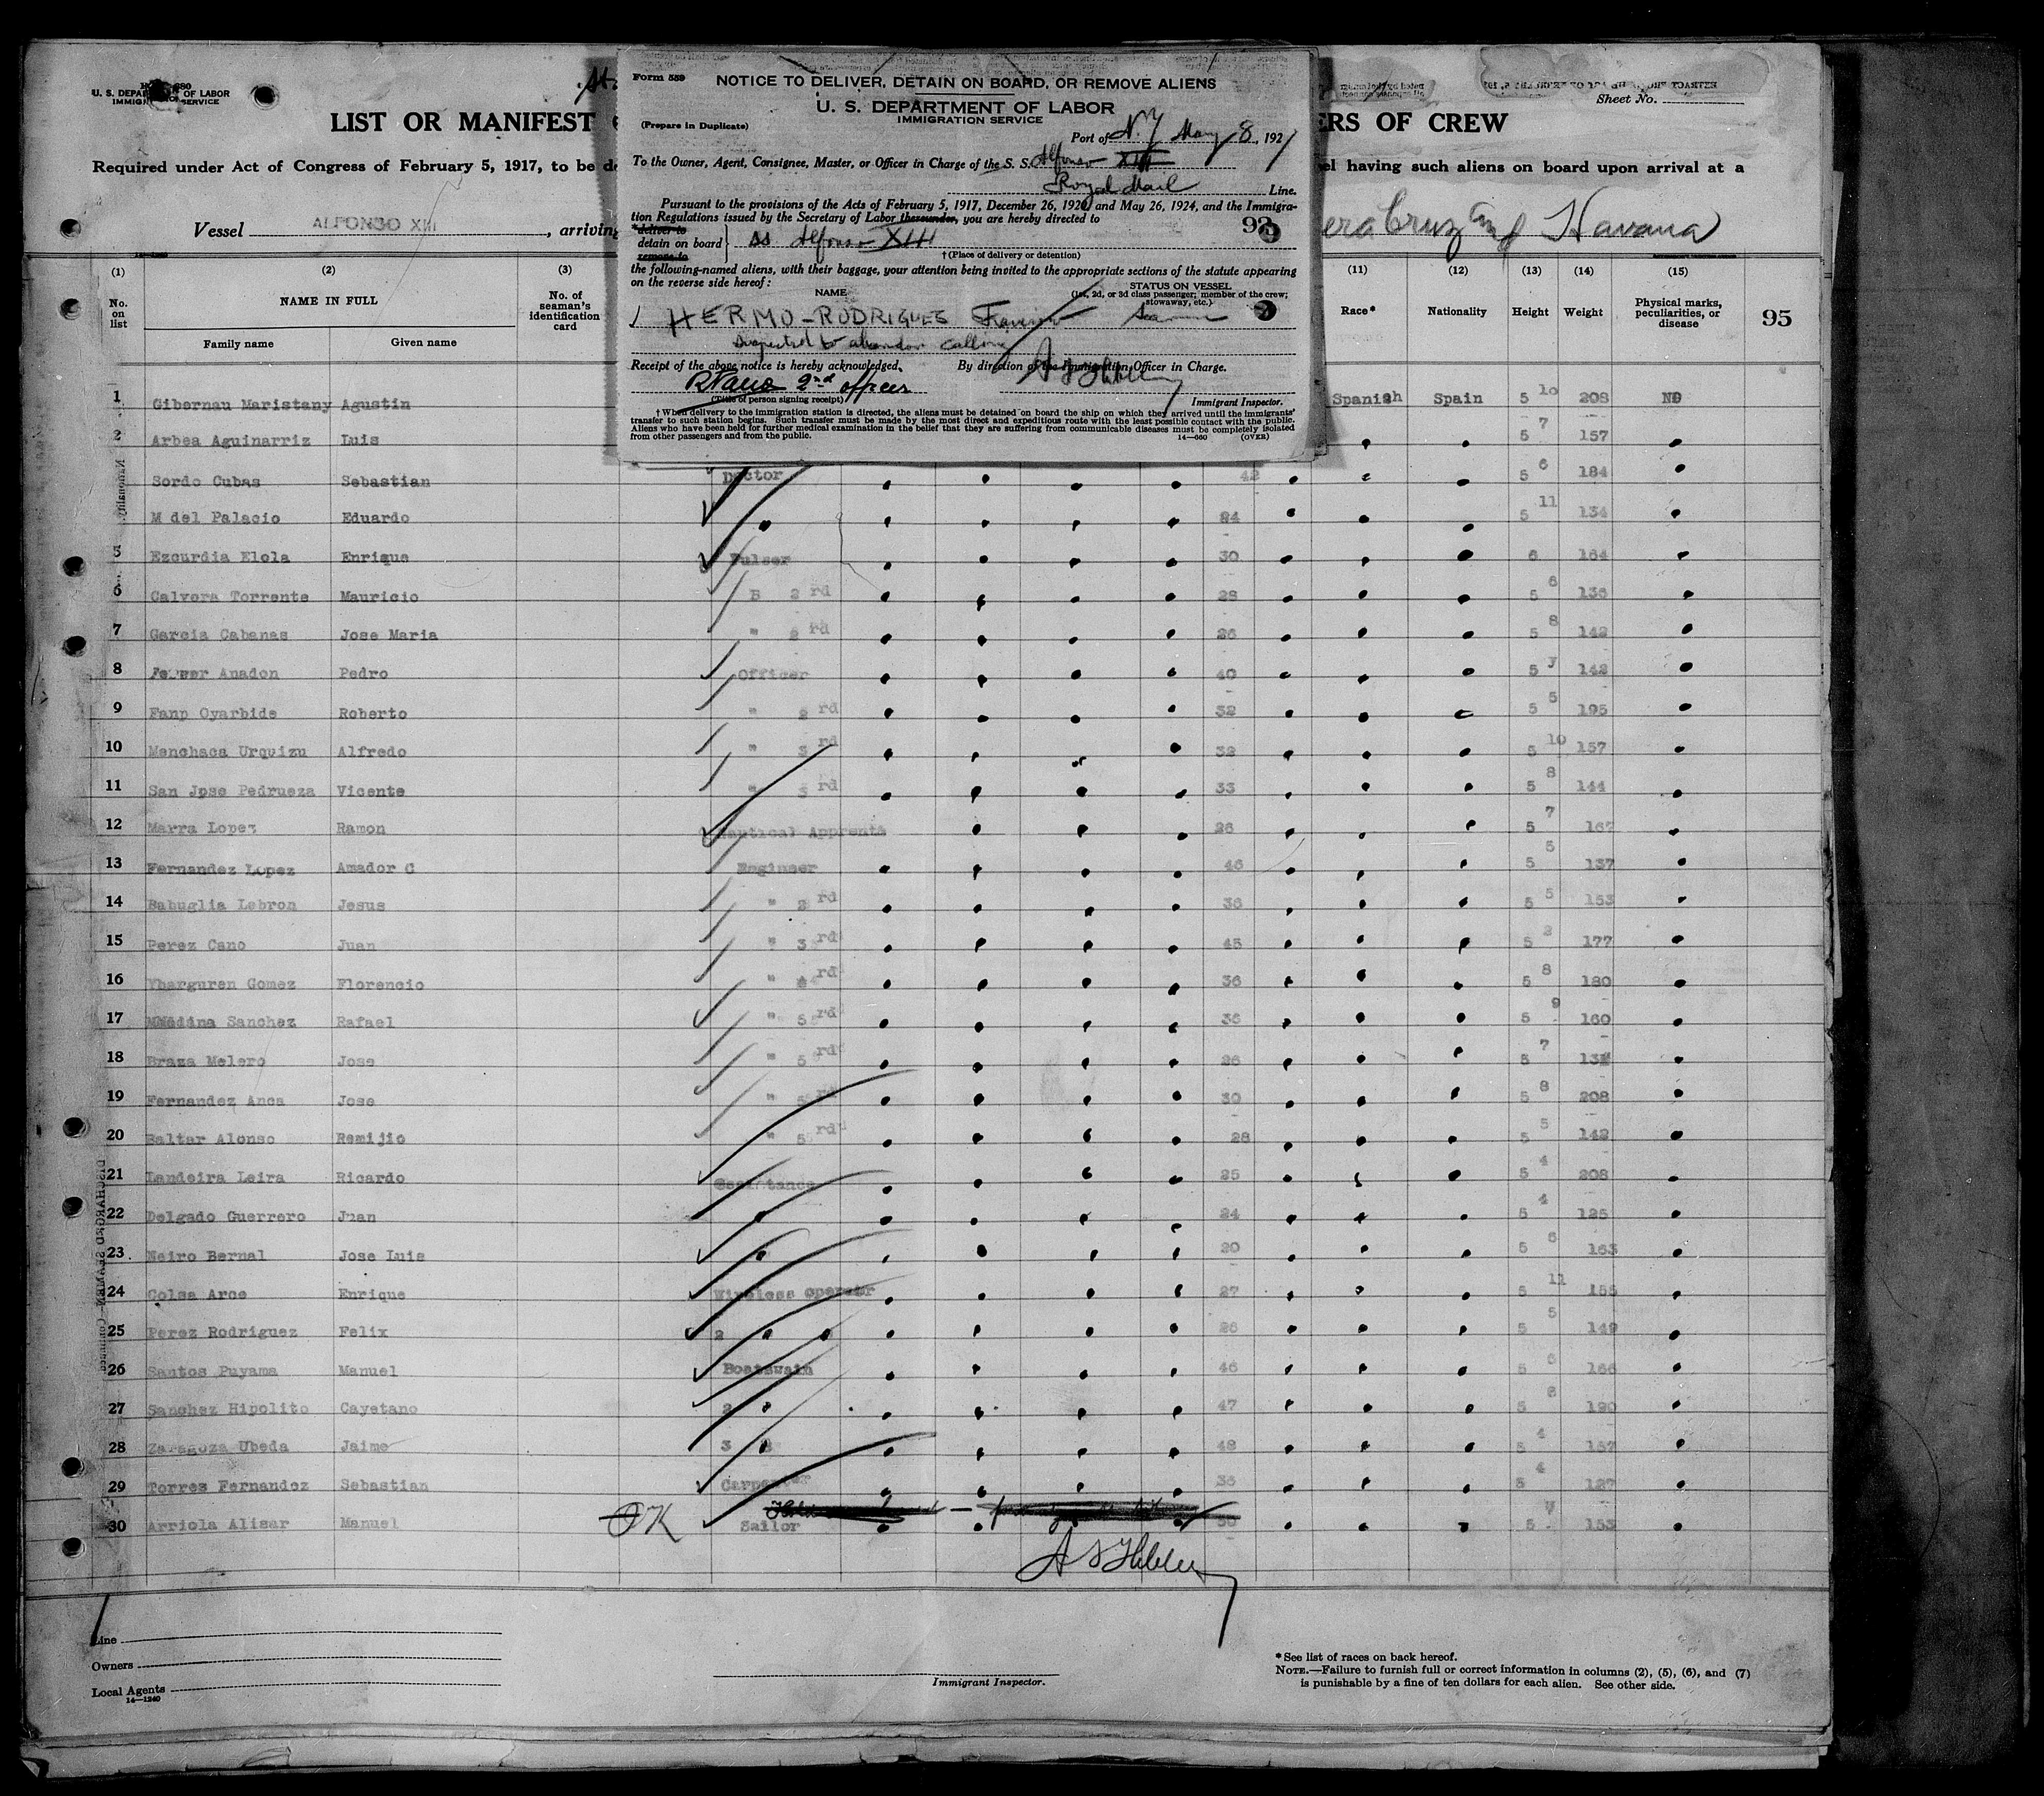 U. S. DEPARTMENT OF LABOR
IMMIGRATION SERVICE
LIST OR MANIFEST
ERS OF CREW
Sheet No.
Required under Act of Congress of February 5, 1917, to be de
el having such aliens on board upon arrival at a
Vessel ALFONSO XIII, arriving
era Cruz and Havana
Form 559
NOTICE TO DELIVER, DETAIN ON BOARD, OR REMOVE ALIENS
U. S. DEPARTMENT OF LABOR
IMMIGRATION SERVICE
(Prepare in Duplicate)
Port of N.Y May 8, 1927
To the Owner, Agent, Consignee, Master, or Officer in Charge of the S. S. Alfonso XIII
Royal Mail Line.
Pursuant to the provisions of the Acts of February 5, 1917, December 26, 1920, and May 26, 1924, and the Immigra-
tion Regulations issued by the Secretary of Labor thereunder, you are hereby directed to
93
*deliver to
detain on board } SS Alfonso XIII
remove to
†(Place of delivery or detention)
the following-named aliens, with their baggage, your attention being invited to the appropriate sections of the statute appearing
on the reverse side hereof:
NAME
STATUS ON VESSEL
(1st, 2d, or 3d class passenger; member of the crew;
stowaway, etc.)
HERMO-RODRIGUES Seaman
Suspected to abandon calling
Receipt of the above notice is hereby acknowledged.
By direction of the Immigration Officer in Charge.
2nd officer
(Title of person signing receipt)
Immigrant Inspector.
†When delivery to the immigration station is directed, the aliens must be detained on board the ship on which they arrived until the immigrants'
transfer to such station begins. Such transfer must be made by the most direct and expeditious route with the least possible contact with the public.
Aliens who have been held for further medical examination in the belief that they are suffering from communicable diseases must be completely isolated
from other passengers and from the public.
14—660 (OVER)
(1) (2) (3) (11) (12) (13) (14) (15)
No. on list
NAME IN FULL
Family name Given name
No. of seaman's identification card
Race* Nationality Height Weight Physical marks, peculiarities, or disease
95
1 Gibernau Maristany Agustin Spanish Spain 5 10 208 NO
2 Arbea Aguinarriz Luis 5 7 157
Sordo Cubas Sebastian Doctor 42 5 6 184
M del Palacio Eduardo 24 5 11 134
5 Ezcurdia Elola Enrique Pulser 30 6 164
6 Calvera Torrente Mauricio B 2 rd 28 5 6 136
7 Garcia Cabanas Jose Maria " 2 rd 26 5 8 142
8 Anadon Pedro Officer 40 5 7 142
9 Fanp Oyarbide Roberto " 2 rd 32 5 5 195
10 Menchaca Urquizu Alfredo " 3 rd 32 5 10 157
11 San Jose Pedrueza Vicente " 3 rd 33 5 8 144
12 Marra Lopez Ramon Nautical Apprents 26 5 7 167
13 Fernandez Lopez Amador C Engineer 46 5 5 137
14 Babuglia Lebron Jesus " 2 rd 36 5 5 153
15 Perez Cano Juan " 3 rd 45 5 2 177
16 Ybarguren Gomez Florencio " 4 rd 36 5 8 180
17 Medina Sanchez Rafael " 5 rd 36 5 9 160
18 Braza Melero Jose " 5 rd 26 5 7 13
19 Fernandez Anca Jose " 5 rd 30 5 8 208
20 Baltar Alonso Remijio " 5 rd 28 5 5 142
21 Landeira Leira Ricardo 25 5 4 208
22 Delgado Guerrero Juan 24 5 4 125
23 Neiro Bernal Jose Luis 20 5 6 163
24 Colsa Arce Enrique Wireless operator 27 5 11 155
25 Perez Rodriguez Felix 2 26 5 5 149
26 Santos Puyama Manuel Boatswain 46 5 6 166
27 Sanchez Hipolito Cayetano 2 47 5 190
28 Zaragoza Ubeda Jaime 3 48 5 4 157
29 Torres Fernandez Sebastian Carpenter 36 5 4 127
30 Arriola Alisar Manuel OK Sailor 5 153
DISCHARGED SEAMEN—Continued
Line
Owners
Local Agents
14—1240
Immigrant Inspector.
*See list of races on back hereof.
NOTE.—Failure to furnish full or correct information in columns (2), (5), (6), and (7)
is punishable by a fine of ten dollars for each alien. See other side.